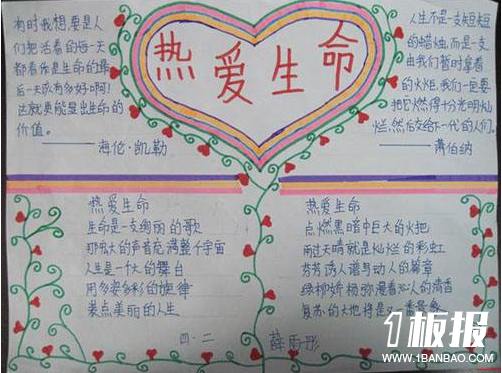 热爱生命
有时我想,要是人
们把活着的每一天
都看作是生命的最
后一天该有多好啊!
这就更能显出生命的
价值。
——海伦·凯勒
人生不是一支短短
的蜡烛,而是一支
由我们暂时拿着
的火炬,我们一定要
把它燃得十分光明灿
烂,然后交给下一代的人们。
——萧伯纳
热爱生命
生命是一支绚丽的歌
那伟大的声音充满整个宇宙
人生是一个大的舞台
用多姿多彩的旋律
装点美丽的人生
四·二
热爱生命
点燃黑暗中巨大的火把
雨过天晴就是灿烂的彩虹
芬芳诱人谱写动人的篇章
绿柳娇杨弥漫着沁人的清香
复苏的大地将是又一番景象
薛雨彤
1板报
WWW.1BANBAO.COM